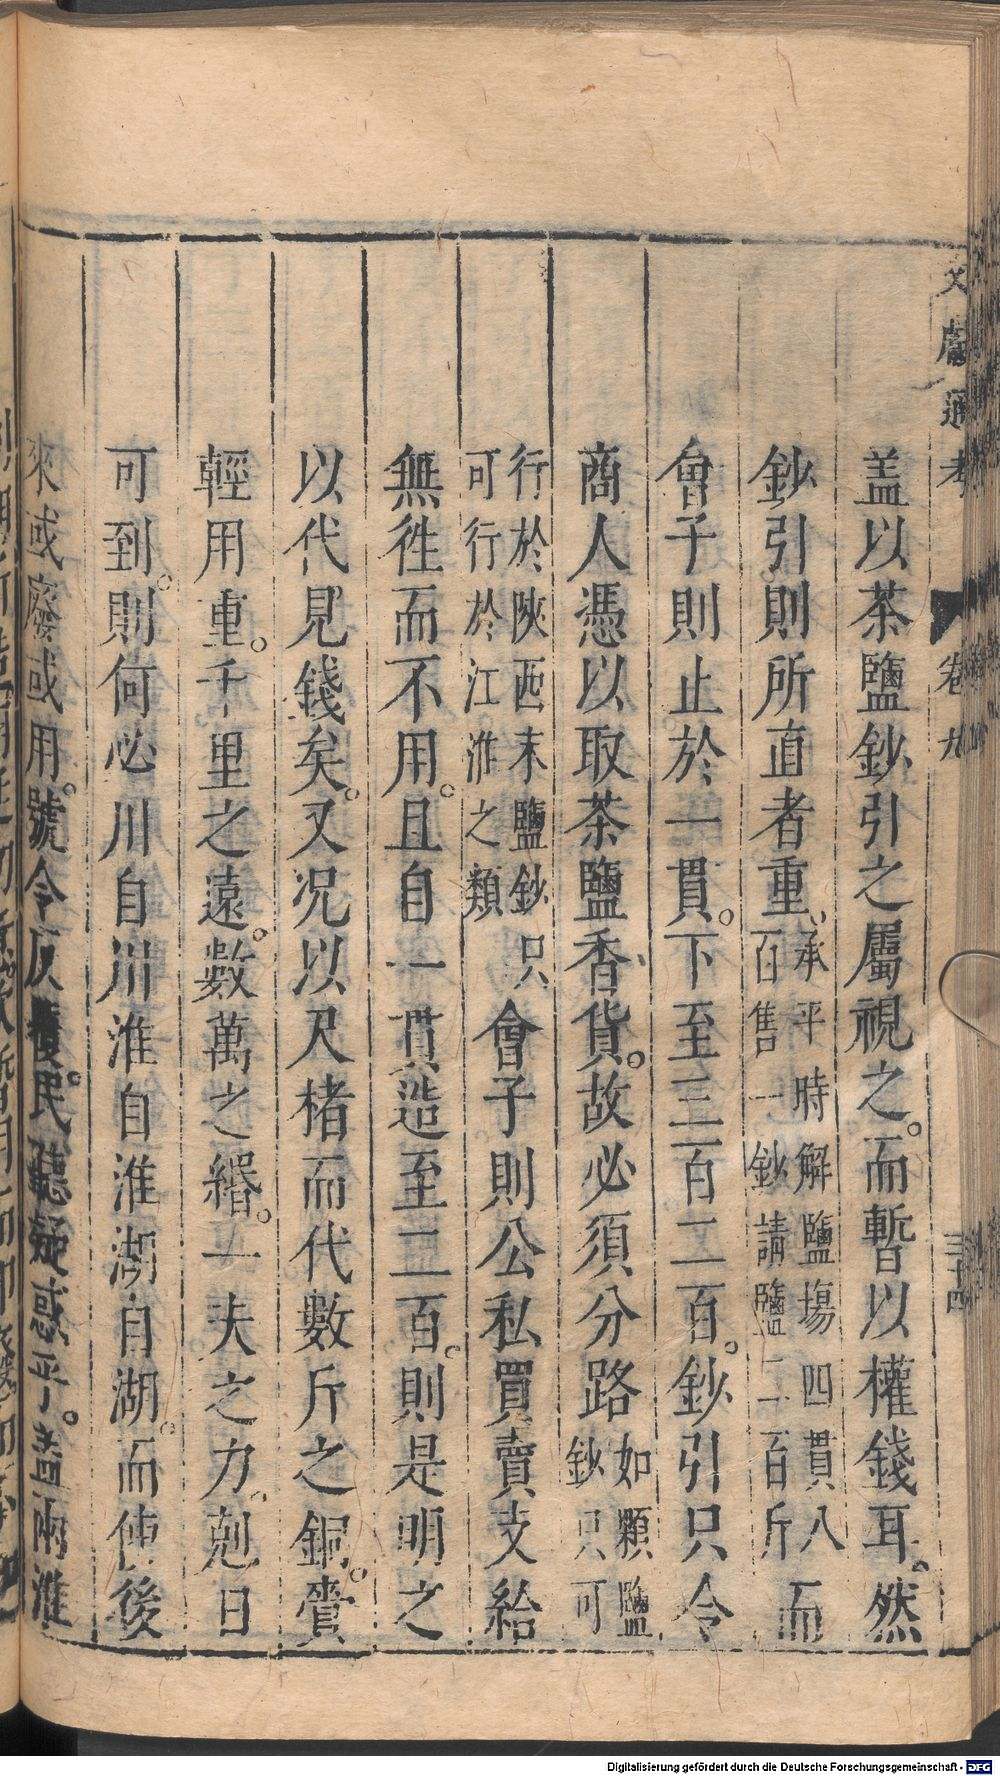 文獻通考
卷九
三十四
盖以茶鹽鈔引之屬視之而暫以權錢耳然
鈔引則所直者重承平時解鹽場四貫八百售一鈔請鹽二百斤而
會子則止於一貫下至三百二百鈔引只令
商人憑以取茶鹽香貨故必須分路如顆鹽鈔只可
行於陝西末鹽鈔只可行於江淮之類會子則公私買賣支給
無徃而不用且自一貫造至二百則是明之
以代見錢矣又况以尺楮而代數斤之銅賫
輕用重千里之遠數萬之緡一夫之力剋日
可到則何必川自川淮自淮湖自湖而使後
來或廢或用號令反覆民聽疑惑乎盖兩淮
Digitalisierung gefördert durch die Deutsche Forschungsgemeinschaft - DFG